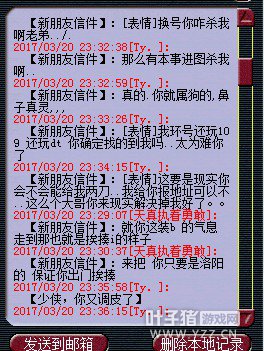 【新朋友信件】：[表情]换号你咋杀我
啊老弟../.
2017/03/20 23:32:38[Ty. ]:
【新朋友信件】：那么有本事进图杀我
啊..
2017/03/20 23:32:59[Ty. ]:
【新朋友信件】：真的.你就属狗的,鼻
子真灵,,,
2017/03/20 23:33:26[Ty. ]:
【新朋友信件】：[表情]我环号还玩109
还玩dt 你确定找的到我吗..太为难你
了
2017/03/20 23:34:15[Ty. ]:
【新朋友信件】：[表情]这要是现实你
会不会配给我两刀..我给你报地址可以不
..这么个大哥你来现实解决掉我好了。。。
2017/03/20 23:29:07[天真执着勇敢]:
【新朋友信件】：就你这装b 的气息
走到那也就是挨揍i的样子
2017/03/20 23:30:37[天真执着勇敢]:
【新朋友信件】：来把 你只要是洛阳
的 保证你出门挨揍
2017/03/20 23:35:58[Ty. ]:
【少侠，你又调皮了】
2017/03/20 23:36:15[Ty. ]:
发送到邮箱
删除本地记录
叶子猪游戏网
WWW.YZZ.CN